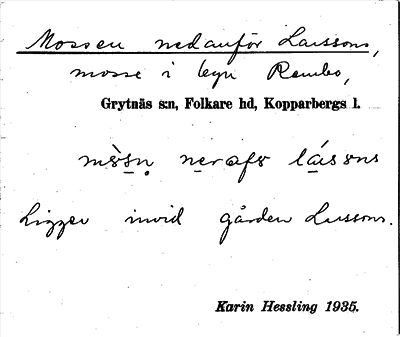 Mossen nedanför Larssons,
mosse i byn Rembo,
Grytnäs s:n, Folkare hd, Kopparbergs l.
Ligger invid gården Larssons.
Karin Hessling 1935.